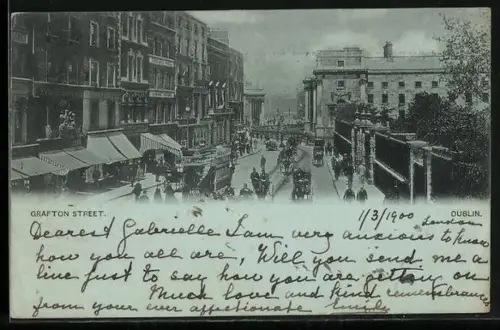 GRAFTON STREET.
DUBLIN.
1/3/1900
London
Dearest Gabrielle I am very ancious to know
how you all are, Will you send me a
line just to say how you are getting on
Much love and kind remembrances
from your ever affectionate Emily